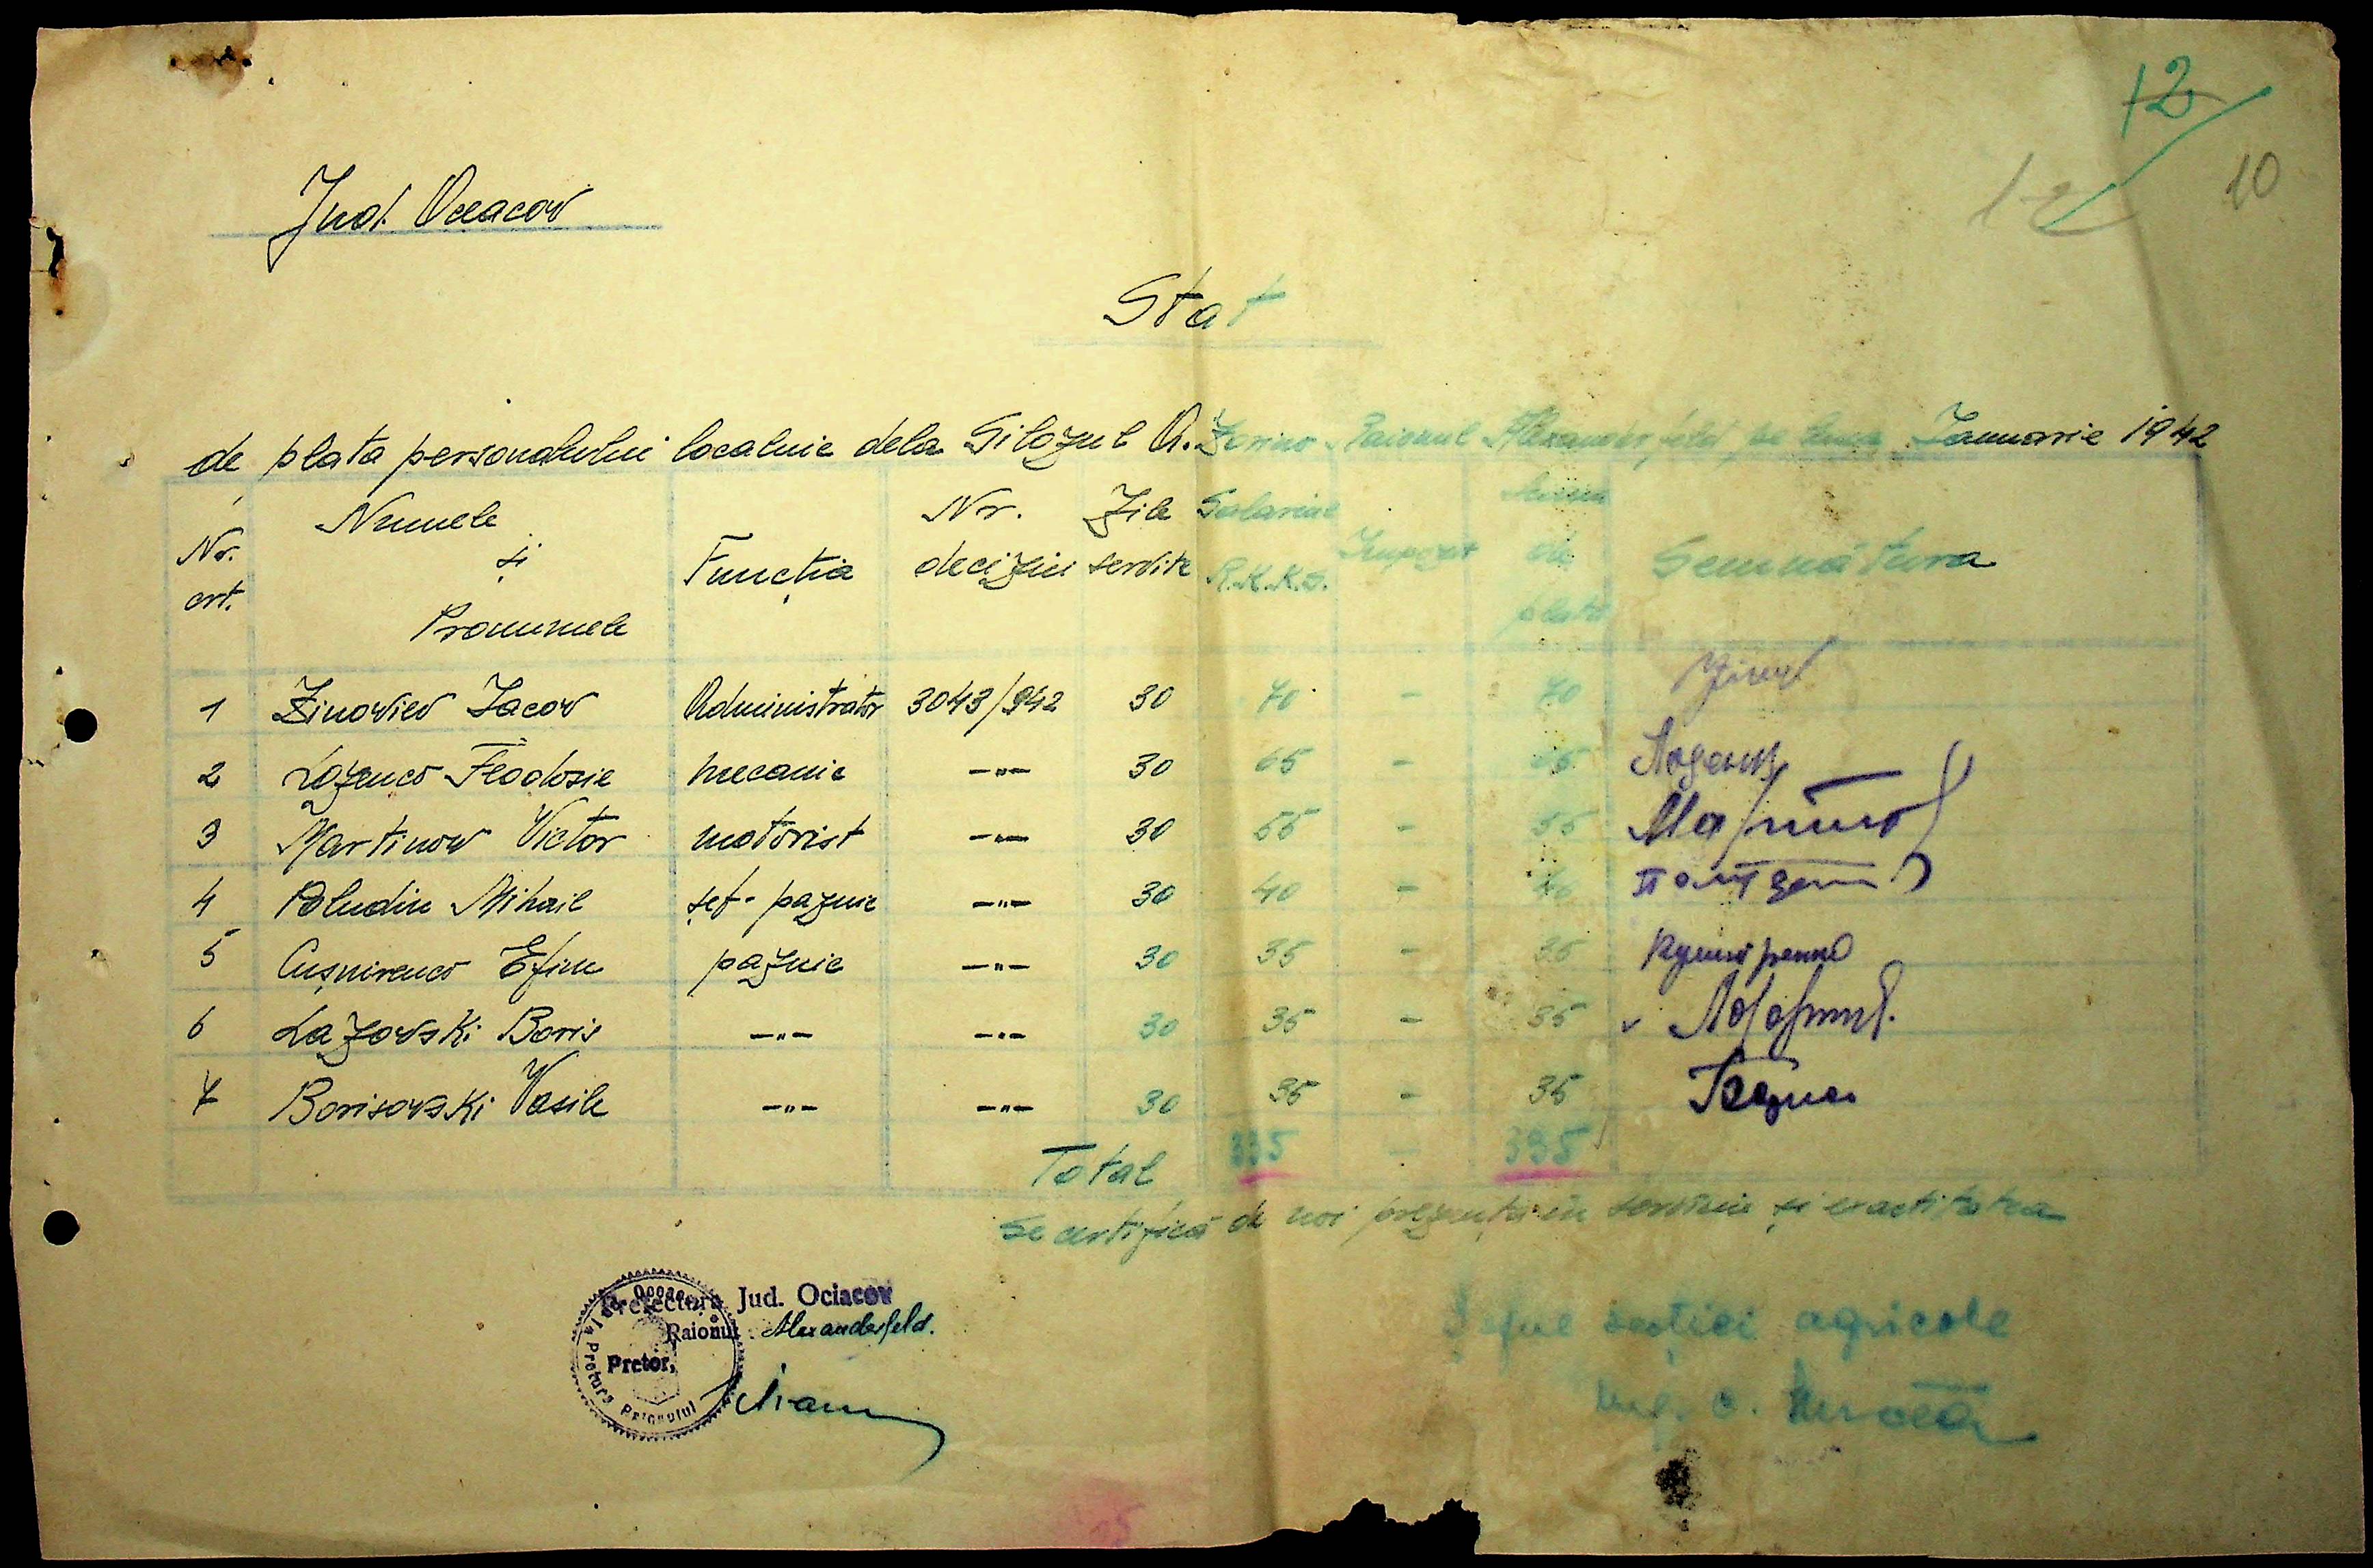 12
12 10
Jud. Oceacov
Stat
de plata personalului localnic dela Silozul A. Zorino - Raionul Alexanderfeld pe luna Ianuarie 1942
Nr. crt. Numele și Pronumele Funcția Nr. deciziei Zile servite Salariul R.K.K.S. Impozit Suma de plată Semnătura
1 Zinoviev Iacov Administrator 3043/942 30 70 - 70
2 Lozenco Feodosie mecanic -"- 30 65 - 65
3 Martinov Victor motorist -"- 30 55 - 55
4 Poludin Mihail șef-paznic -"- 30 40 - 40
5 Cușnirenco Efim paznic -"- 30 35 - 35
6 Lazovski Boris -"- -"- 30 35 - 35
7 Borisovski Vasile -"- -"- 30 35 - 35
Total 335 - 335
Se certifică de noi prezența în serviciu și exactitatea
Prefectura Jud. Ociacov
Raionul Alexanderfeld.
Pretor,
Pretura Raionului
Șeful secției agricole
Ing. C.